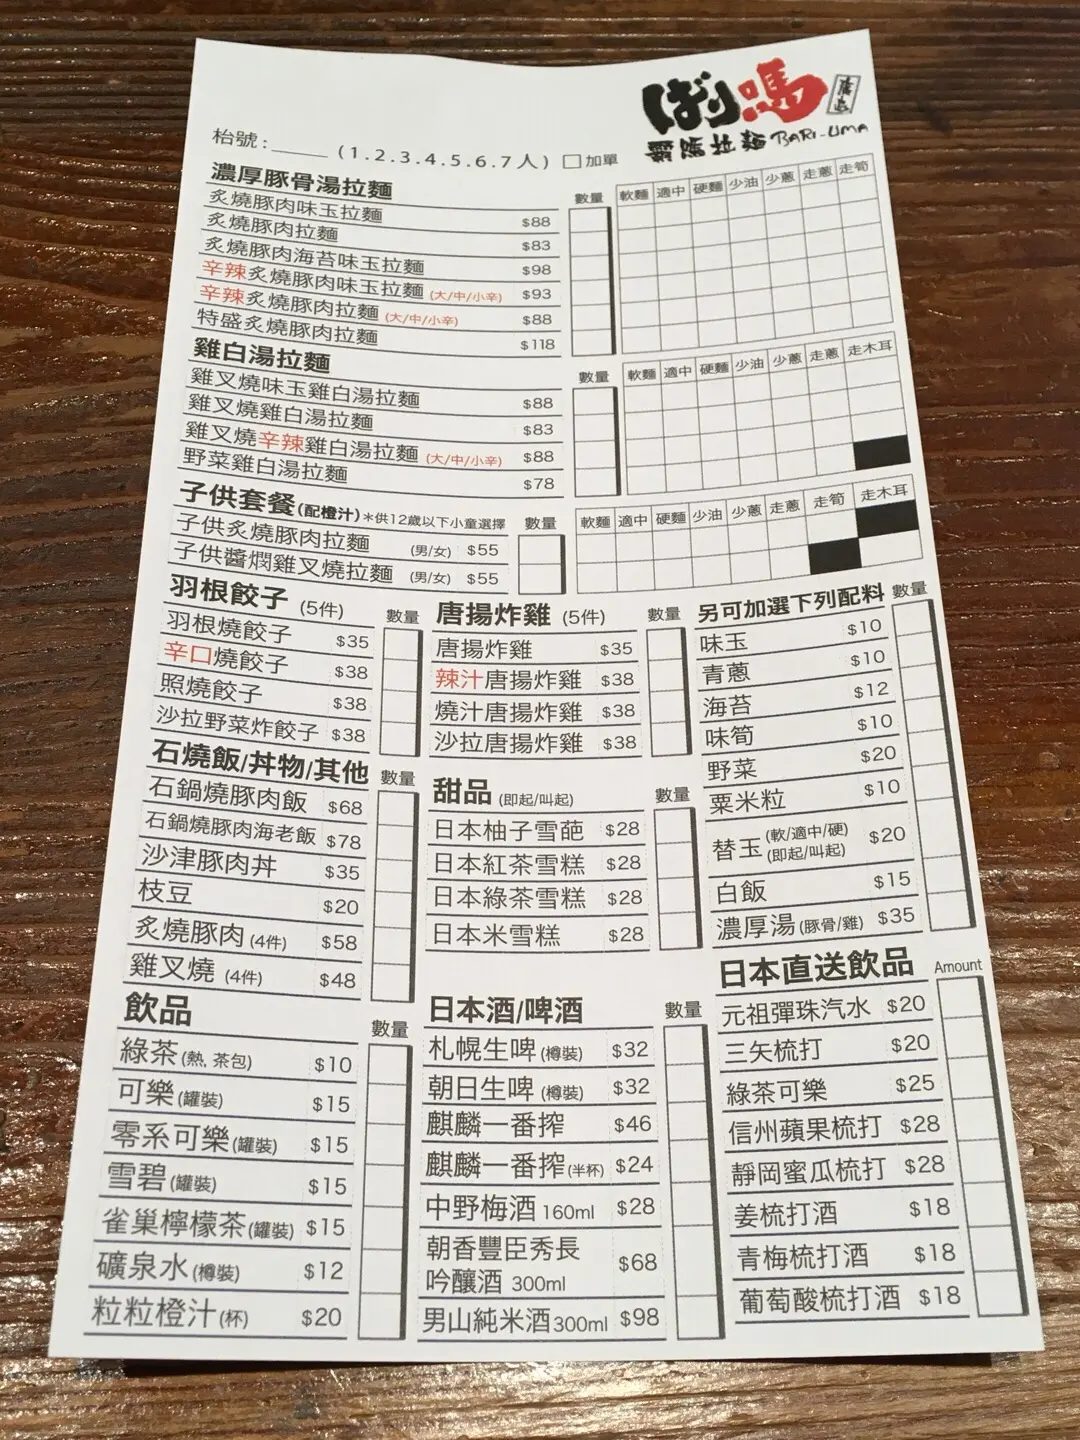 ばり嗎
霸嗎拉麵 BARI-UMA
枱號:_____ (1.2.3.4.5.6.7人) □加單
濃厚豚骨湯拉麵 數量 軟麵 適中 硬麵 少油 少蔥 走蔥 走筍
炙燒豚肉味玉拉麵 $88
炙燒豚肉拉麵 $83
炙燒豚肉海苔味玉拉麵 $98
辛辣炙燒豚肉味玉拉麵 (大/中/小辛) $93
辛辣炙燒豚肉拉麵 (大/中/小辛) $88
特盛炙燒豚肉拉麵 $118
雞白湯拉麵 數量 軟麵 適中 硬麵 少油 少蔥 走蔥 走木耳
雞叉燒味玉雞白湯拉麵 $88
雞叉燒雞白湯拉麵 $83
雞叉燒辛辣雞白湯拉麵 (大/中/小辛) $88
野菜雞白湯拉麵 $78
子供套餐(配橙汁)*供12歲以下小童選擇 數量 軟麵 適中 硬麵 少油 少蔥 走蔥 走筍 走木耳
子供炙燒豚肉拉麵 (男/女) $55
子供醬燜雞叉燒拉麵 (男/女) $55
羽根餃子 (5件) 數量
羽根燒餃子 $35
辛口燒餃子 $38
照燒餃子 $38
沙拉野菜炸餃子 $38
石燒飯/丼物/其他 數量
石鍋燒豚肉飯 $68
石鍋燒豚肉海老飯 $78
沙津豚肉丼 $35
枝豆 $20
炙燒豚肉 (4件) $58
雞叉燒 (4件) $48
飲品 數量
綠茶 (熱, 茶包) $10
可樂 (罐裝) $15
零系可樂 (罐裝) $15
雪碧 (罐裝) $15
雀巢檸檬茶 (罐裝) $15
礦泉水 (樽裝) $12
粒粒橙汁 (杯) $20
唐揚炸雞 (5件) 數量
唐揚炸雞 $35
辣汁唐揚炸雞 $38
燒汁唐揚炸雞 $38
沙拉唐揚炸雞 $38
甜品 (即起/叫起) 數量
日本柚子雪葩 $28
日本紅茶雪糕 $28
日本綠茶雪糕 $28
日本米雪糕 $28
日本酒/啤酒 數量
札幌生啤 (樽裝) $32
朝日生啤 (樽裝) $32
麒麟一番搾 $46
麒麟一番搾 (半杯) $24
中野梅酒 160ml $28
朝香豐臣秀長
吟釀酒 300ml $68
男山純米酒 300ml $98
另可加選下列配料 數量
味玉 $10
青蔥 $10
海苔 $12
味筍 $10
野菜 $20
粟米粒 $10
替玉 (軟/適中/硬) (即起/叫起) $20
白飯 $15
濃厚湯 (豚骨/雞) $35
日本直送飲品 Amount
元祖彈珠汽水 $20
三矢梳打 $20
綠茶可樂 $25
信州蘋果梳打 $28
靜岡蜜瓜梳打 $28
姜梳打酒 $18
青梅梳打酒 $18
葡萄酸梳打酒 $18